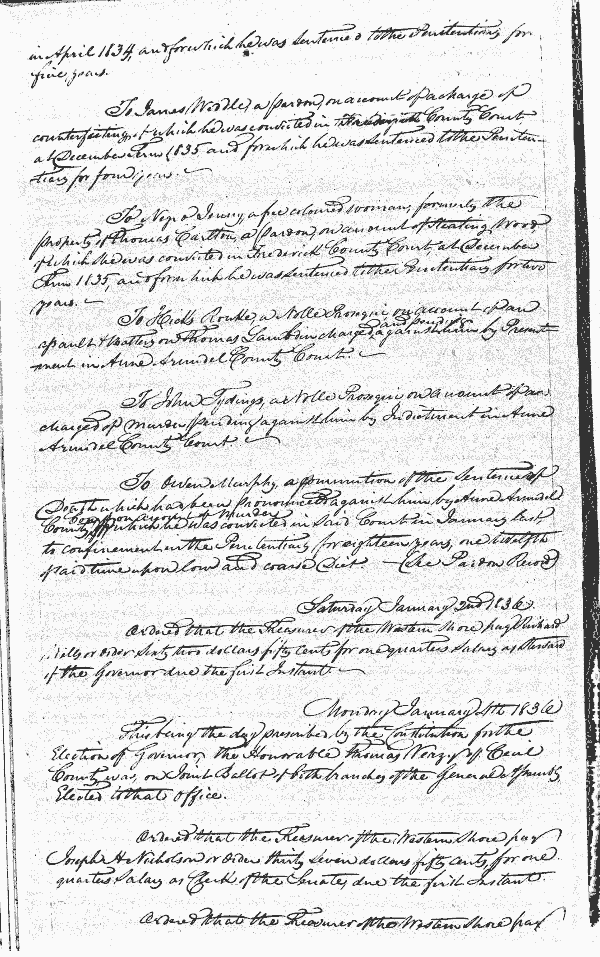 in April 1834, and for which he was sentenced to the Penitentiary for
five years.
To James Woddle, a pardon, on account of a charge of
counterfeiting, of which he was convicted in Frederick County Court,
at December Term 1835 and for which he was sentenced to the Peniten-
tiary for four years.
To Negro Jenny, a free coloured woman, formerly the
property of Thomas Carlton, a Pardon, on account of Stealing Wood
of which she was convicted in Frederick County Court, at December
Term 1835, and for which he was sentenced to the Penitentiary for two
years.
To Hicks Rouke, a Nolle Prosequi on account of an
assault & Battery on Thomas Lamb in charged and pending against him by Present-
ment in Anne Arundel County Court.
To John Tydings, a Nolle Prosequi on account of a
charge of Murder pending against him by Indictment in Anne
Arundel County Court
To Owen Murphy, a commutation of the Sentence of
Death which had been pronounced against him by Anne Arundel
County upon a conviction of Murder
of which he was convicted in said Court in January last,
to confinement in the Penitentiary for eighteen years, one twelfth
of said time upon low and coarse Diet — (See Pardon Record)
Saturday January 2nd 1836
Ordered that the Treasurer of the Western Shore pay Richard
or order Sixty two dollars fifty cents for one quarters Salary as Steward
of the Governor due the first Instant.
Monday January 4th 1836
This being the day prescribed by the Constitution for the
Election of Governor, the Honorable Thomas Veazey of Cecil
County was, on Joint Ballot of both branches of the General Assembly
Elected to that office.
Ordered that the Treasurer of the Western Shore pay
Joseph H Nicholson or order Thirty Seven dollars fifty cents, for one
quarters Salary as Clerk of the Senate, due the first Instant
Ordered that the Treasurer of the Western Shore pay